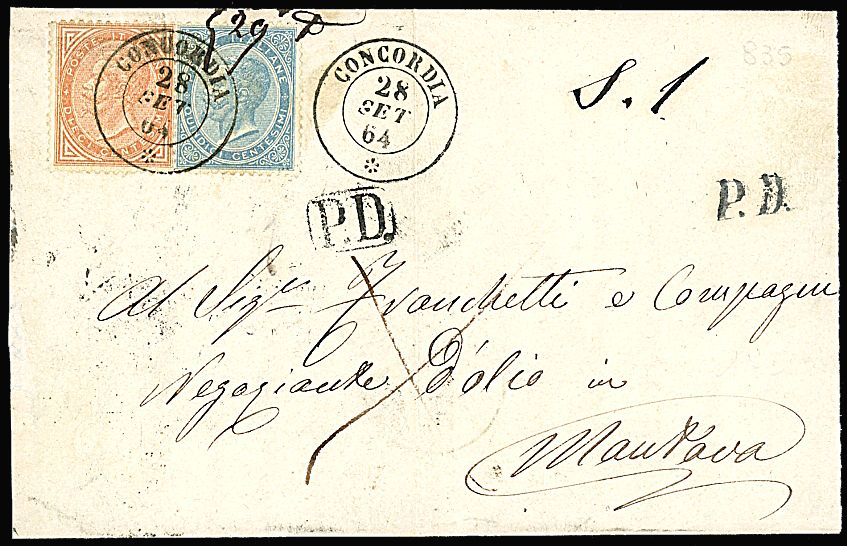 29
POSTE ITALIANE
DIECI CENTESIMI
QUINDICI CENTESIMI
CONCORDIA
28
SET
64
CONCORDIA
28
SET
64
835
S. 1
P.D.
P.D.
Al Sigr Franchetti e Compagni
Negoziante D'olio in
Mantova